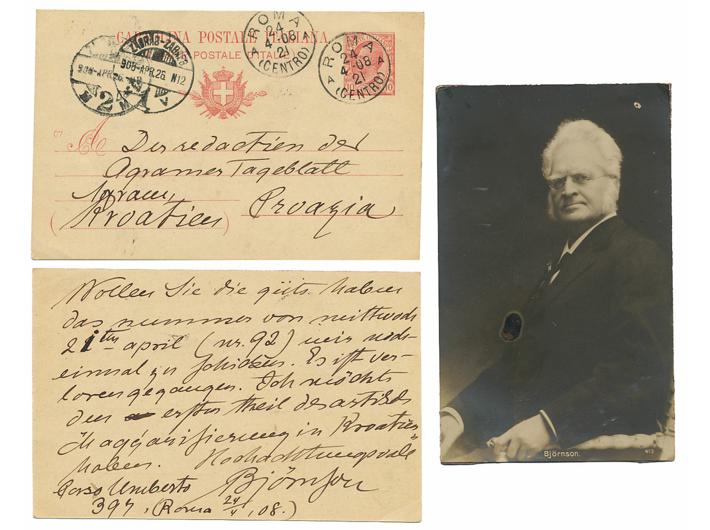 CARTOLINA POSTALE ITALIANA
ROMA
24
4-08
21
(CENTRO)
ROMA
24
4-08
21
(CENTRO)
ZAGREB-ZÁGRÁB
908-APR.26. N12
908-APR.26
N 2
A
Der redactien der
Agramer Tageblatt
Agram,
Kroatien) Croazia
Wollen Sie die güte haben
das nummer von mittwoch
21ten april (nr. 92) mir noch
einmal zu schicken. Es ist ver-
loren gegangen. Ich möchte
den ersten theil des artikels
Maggarisierung in Kroatien
haben. Hochachtungsvoll
Corso Umberto Björnson
397, (Roma 24/4, 08.)
Björnson.